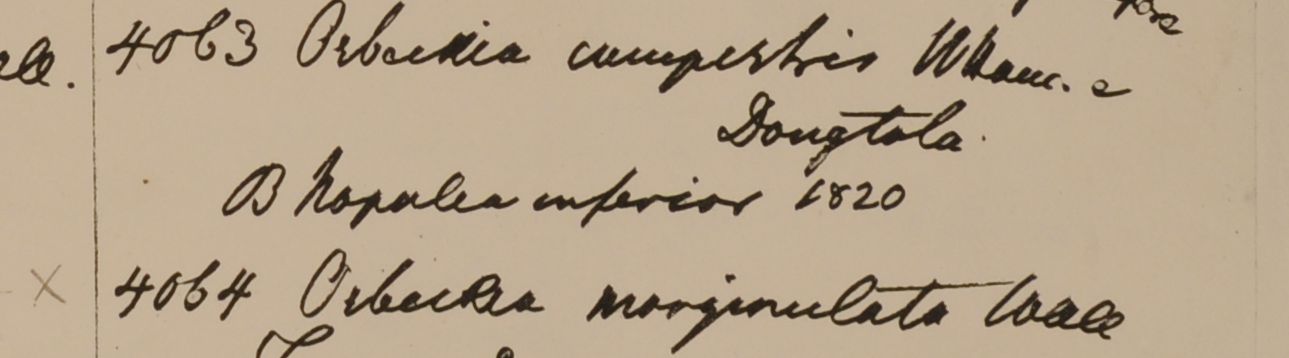 all. 4063 Osbeckia campestris Wham. e
Dongtala.
B Napalea inferior 1820
× 4064 Osbeckia marginulata Wall